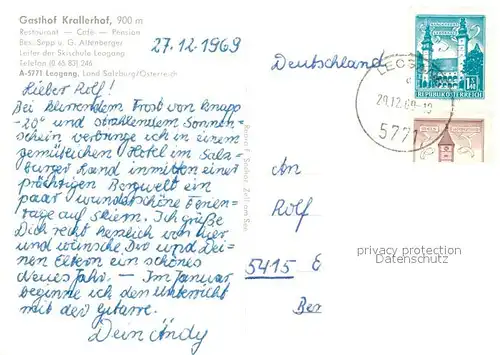 Gasthof Krallerhof, 900 m
Restaurant — Café — Pension
Bes. Sepp u. G. Altenberger
Leiter der Skischule Leogang
Telefon (0 65 83) 246
A-5771 Leogang, Land Salzburg/Österreich
27.12.1969
Lieber Rolf!
Bei klirrendem Frost von knapp
-20° und strahlendem Sonnen-
schein, verbringe ich in einem
gemütlichen Hotel im Salz-
burger Land inmitten einer
prächtigen Bergwelt ein
paar wunderschöne Ferien-
tage auf Skiern. Ich grüße
Dich recht herzlich von hier
und wünsche Dir und Dei-
nen Eltern ein schönes
neues Jahr. — Im Januar
beginne ich den Unterricht
mit der Gitarre.
Dein Andy
Zell am See
Deutschland
LEOGANG
29.12.69-18
5771
1.50
REPUBLIK ÖSTERREICH
An
Rolf
5415 E
Ber
privacy protection
Datenschutz